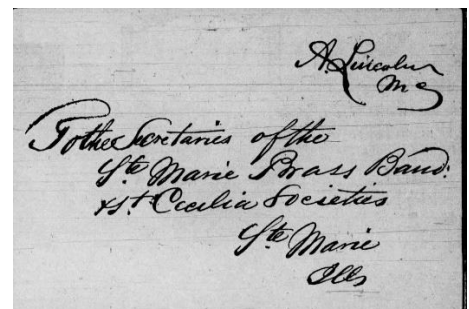 A. Lincoln
MC
To the Secretaries of the
Ste Marie Brass Band.
& St. Cecilia Societies
Ste Marie
Ills